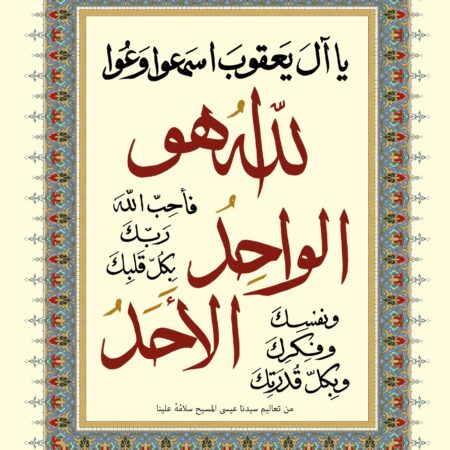 يا آلَ يَعقوبَ اسمَعوا وَعُوا
اللهُ هو
الواحِدُ
الأَحَدُ
فأَحِبّ اللهَ
رَبّكَ
بِكُلّ قَلبِكَ
ونفسِكَ
وفِكرِكَ
وبِكلّ قُدرَتِكَ
من تعاليم سيدنا عيسى المسيح سلامُهُ علينا